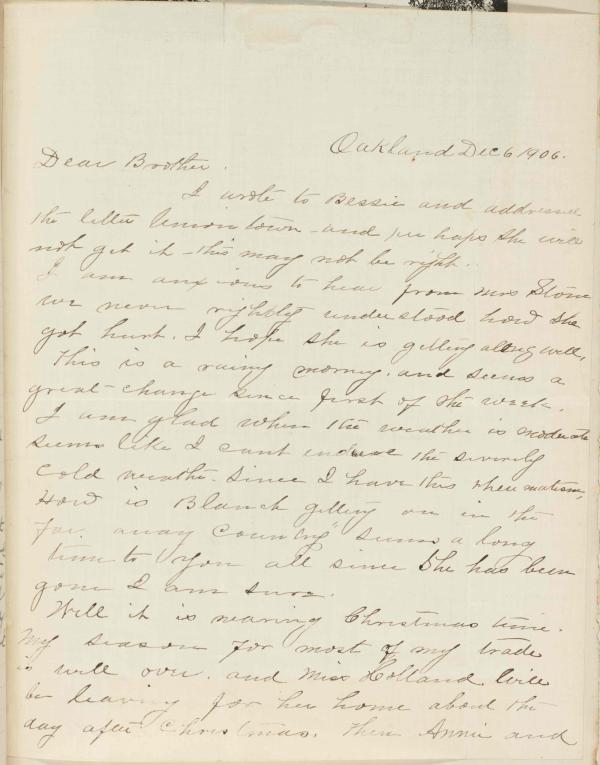 Oakland Dec 6 1906.
Dear Brother.
I wrote to Bessie and addressed
the letter Uniontown - and perhaps she will
not get it - this may not be right.
I am anxious to hear from Mrs Stone
we never rightly understood how she
got hurt. I hope she is getting along well,
This is a rainy morning. and seems a
great change since first of the week.
I am glad when the weather is moderate
seems like I cant endure the severely
cold weather. since I have this rheumatism,
How is Blanch getting on in the
far away Country" seems a long
time to you all since she has been
gone I am sure.
Well it is nearing Christmas time.
My season for most of my trade
is well over. and Miss Holland will
be leaving for her home about the
day after Christmas. Then Annie and